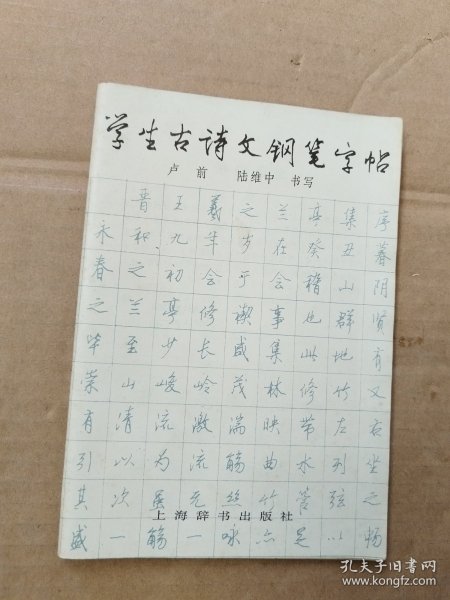 学生古诗文钢笔字帖
卢前 陆维中 书写
晋王羲之兰亭集序
永和九年岁在癸丑暮
春之初会于会稽山阴
之兰亭修禊事也群贤
毕至少长咸集此地有
崇山峻岭茂林修竹又
有清流激湍映带左右
引以为流觞曲水列坐
其次虽无丝竹管弦之
上海辞书出版社
盛一觞一咏亦足以畅
孔夫子旧书网
www.kongfz.com